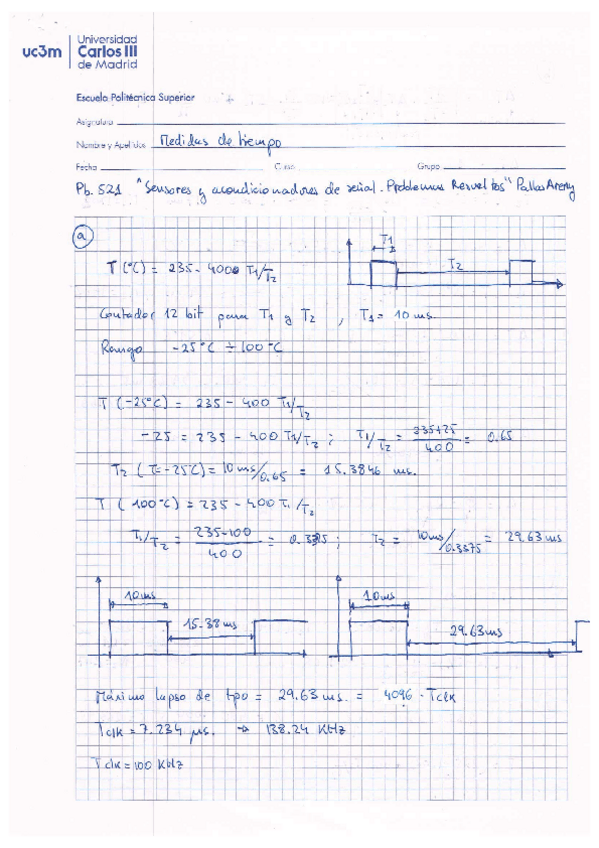 uc3m Universidad Carlos III de Madrid
Escuela Politécnica Superior
Asignatura
Nombre y Apellidos Medidas de tiempo
Fecha Curso Grupo
Pb. 5.21 "Sensores y acondicionadores de señal. Problemas Resueltos" Pallas Areny
a
T1
T2
T(°C) = 235 - 4000 T1/T2
Contador 12 bit para T1 y T2 , T1 = 10 ms.
Rango -25°C ÷ 100°C
T (-25°C) = 235 - 400 T1/T2
-25 = 235 - 400 T1/T2 ; T1/T2 = 235+25/400 = 0.65
T2 (T=-25°C) = 10 ms/0.65 = 15.3846 ms.
T (100°C) = 235 - 400 T1/T2
T1/T2 = 235-100/400 = 0.3375 ; T2 = 10ms/0.3375 = 29.63 ms
10ms 10ms
15.38 ms 29.63 ms
Máximo lapso de tpo = 29.63 ms. = 4096 · Tclk
Tclk = 7.234 μs. → 138.24 KHz
Tclk = 100 KHz